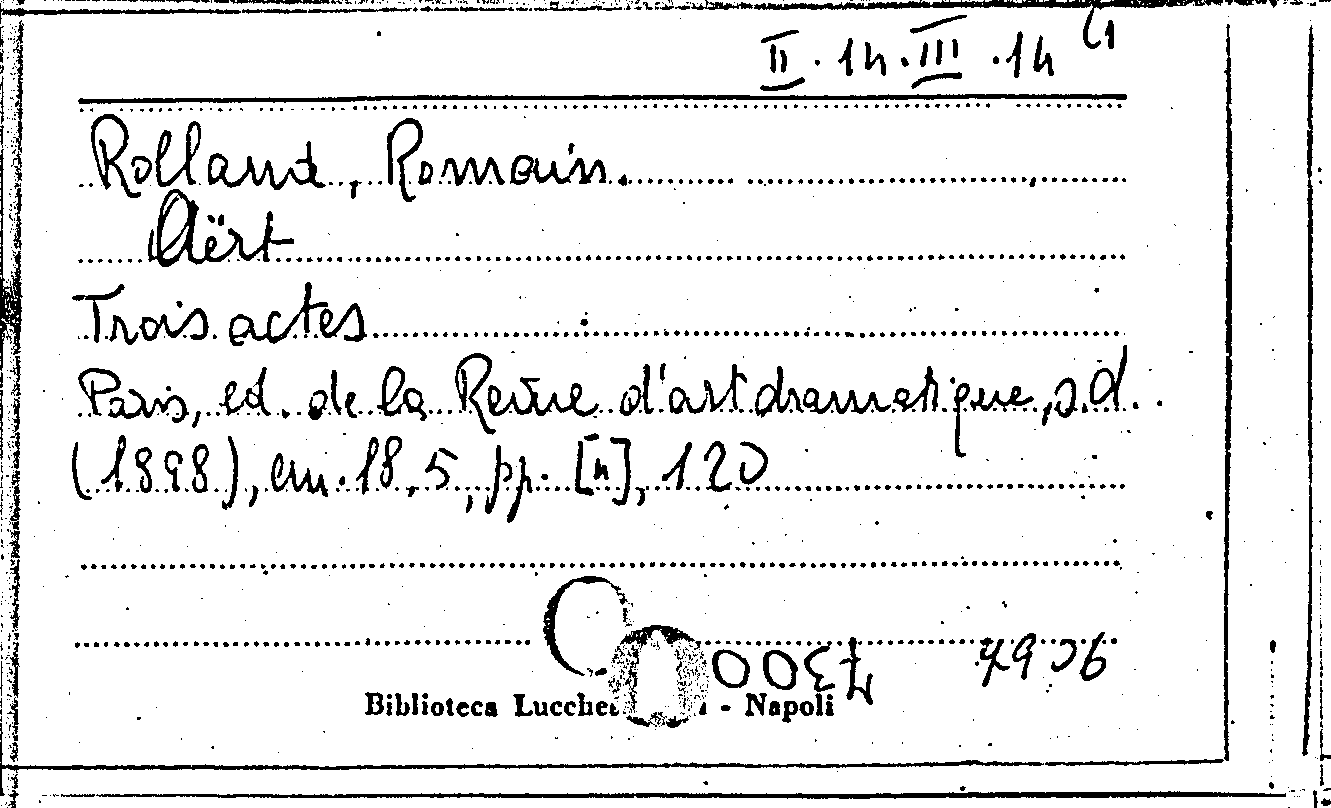 II.14.III.14
Rolland, Romain.
Aërt
Trois actes
Paris, ed. de la Revue d'art dramatique, s.d.
(1898), cm. 18,5, pp. [4], 120
Biblioteca - Napoli